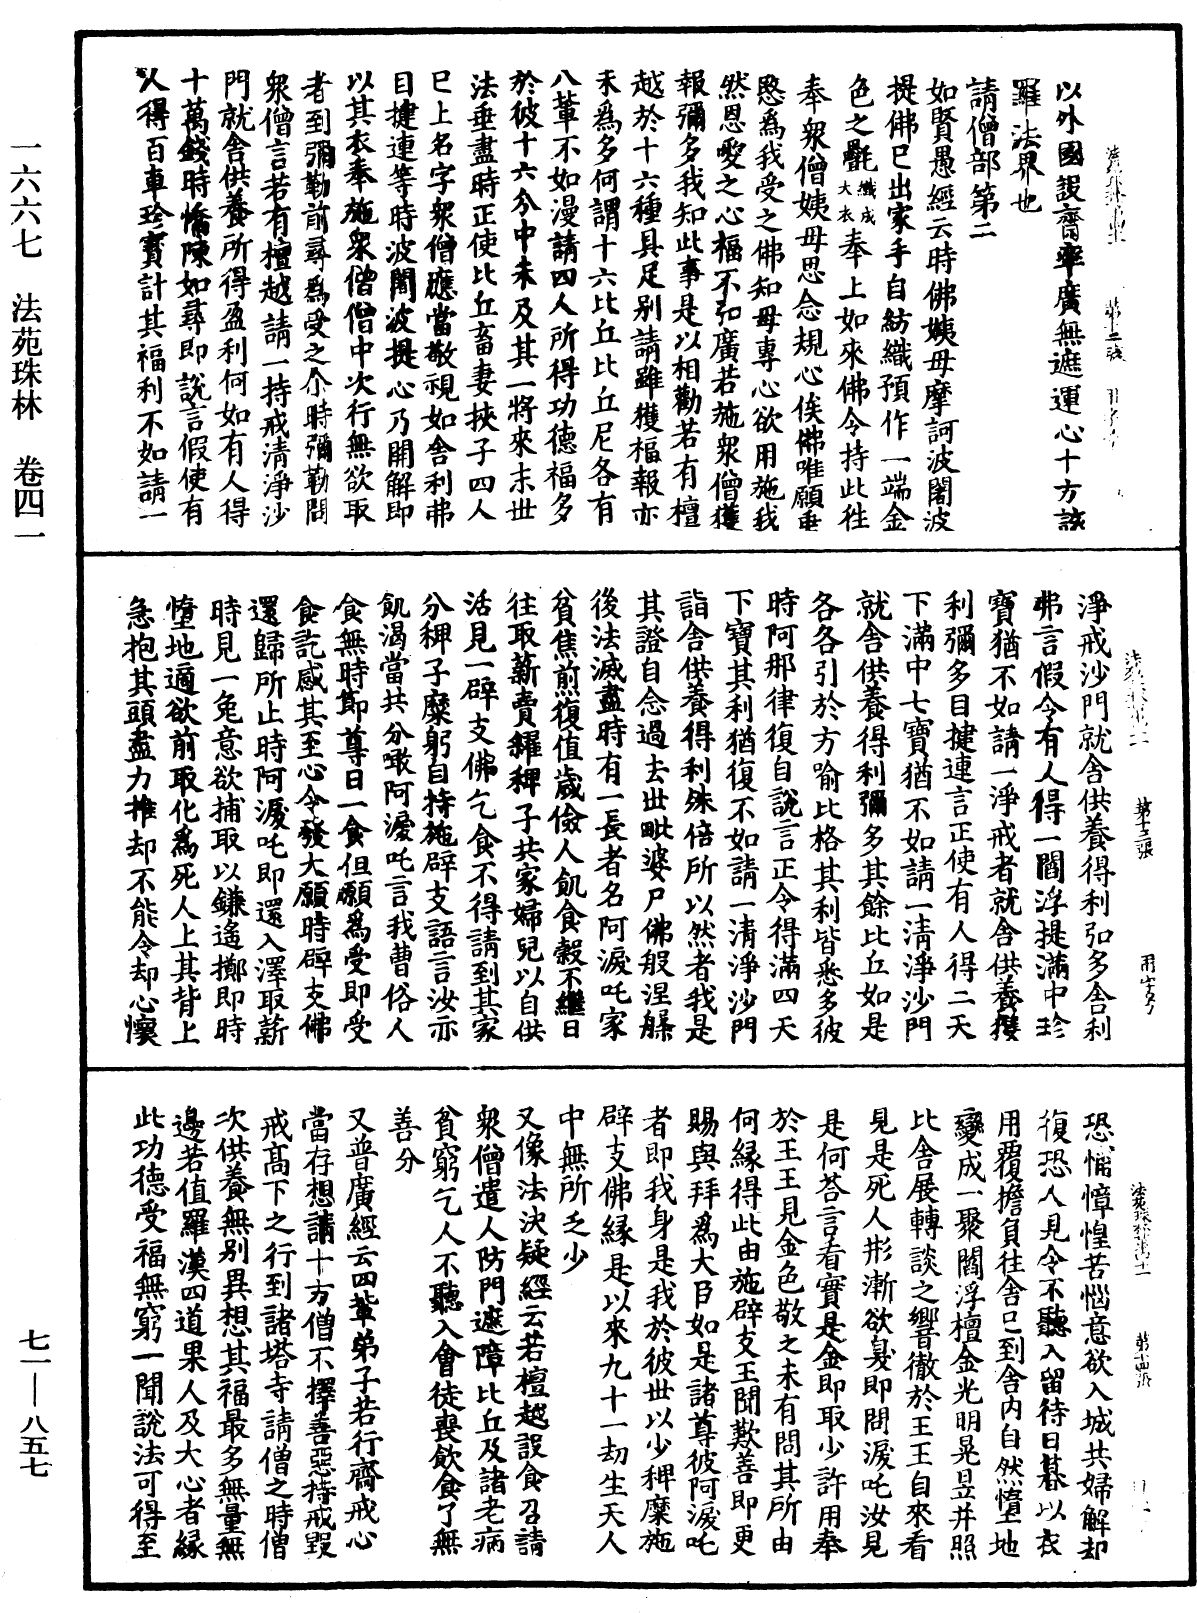 以外國設齋率廣無遮運心十方該
羅法界也
請僧部第二
如賢愚經云時佛姨母摩訶波闍波
提佛巳出家手自紡織預作一端金
色之㲲織成大衣奉上如來佛令持此往
奉衆僧姨母思念規心俟佛唯願垂
愍爲我受之佛知母專心欲用施我
然恩愛之心福不弘廣若施衆僧獲
報彌多我知此事是以相勸若有檀
越於十六種具足别請雖獲福報亦
未爲多何謂十六比丘比丘尼各有
八軰不如漫請四人所得功德福多
於彼十六分中未及其一將來末世
法垂盡時正使比丘畜妻挾子四人
巳上名字衆僧應當敬視如舍利弗
目揵連等時波闍波提心乃開解即
以其衣奉施衆僧僧中次行無欲取
者到彌勒前尋爲受之尒時彌勒問
衆僧言若有檀越請一持戒清淨沙
門就舍供養所得盈利何如有人得
十萬錢時憍陳如尋即說言假使有
人得百車珍寶計其福利不如請一
淨戒沙門就舍供養得利弘多舍利
弗言假令有人得一閻浮提滿中珍
寶猶不如請一淨戒者就舍供養獲
利彌多目揵連言正使有人得二天
下滿中七寶猶不如請一清淨沙門
就舍供養得利彌多其餘比丘如是
各各引於方喻比格其利皆悉多彼
時阿那律復自說言正令得滿四天
下寶其利猶復不如請一清淨沙門
詣舍供養得利殊倍所以然者我是
其證自念過去世毗婆尸佛般涅槃
後法滅盡時有一長者名阿淚吒家
貧焦煎復值歲儉人飢食穀不繼日
往取薪賣糴稗子共家婦兒以自供
活見一辟支佛乞食不得請到其家
分稗子糜躬自持施辟支語言汝亦
飢渴當共分噉阿淚吒言我曹俗人
食無時節尊日一食但願爲受即受
食訖感其至心令發大願時辟支佛
還歸所止時阿淚吒即還入澤取薪
時見一兔意欲捕取以鎌遙擲即時
墮地適欲前取化爲死人上其背上
急抱其頭盡力推却不能令却心懷
恐怖慞惶苦惱意欲入城共婦解却
復恐人見令不聽入留待日暮以衣
用覆擔負往舍已到舍内自然墮地
變成一聚閻浮檀金光明晃昱并照
比舍展轉談之響徹於王王自來看
見是死人形漸欲臭即問淚吒汝見
是何答言看實是金即取少許用奉
於王王見金色敬之未有問其所由
何緣得此由施辟支王聞歎善即更
賜與拜爲大臣如是諸尊彼阿淚吒
者即我身是我於彼世以少稗糜施
辟支佛緣是以來九十一劫生天人
中無所乏少
又像法決疑經云若檀越設食召請
衆僧遣人防門遮障比丘及諸老病
貧窮乞人不聽入會徒喪飲食了無
善分
又普廣經云四軰弟子若行齋戒心
當存想請十方僧不擇善惡持戒毀
戒髙下之行到諸塔寺請僧之時僧
次供養無别異想其福最多無量無
邊若值羅漢四道果人及大心者緣
此功德受福無窮一聞說法可得至
一六六七　法苑珠林　卷四一
七一—八五七